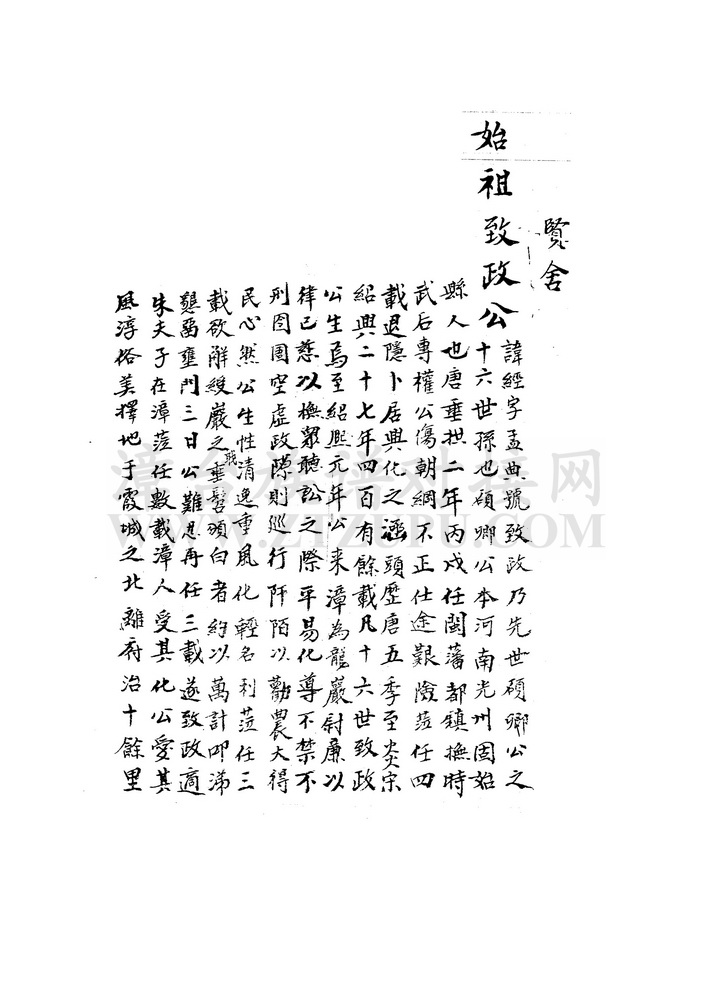 覽舍
始祖致政公諱經字孟典號致政乃先世碩卿公之
十六世孫也碩卿公本河南光州固始
縣人也唐垂拱二年丙戌任閩藩都鎮撫時
武后專權公傷朝綱不正仕途艱險蒞任四
載退隱卜居興化之涵頭歷唐五季至炎宋
紹興二十七年四百有餘載凡十六世致政
公生焉至紹熙元年公来漳為龍巖尉廉以
律己慈以撫眾聽訟之際平易化導不禁不
刑囹圄空虛政隙則巡行阡陌以勸農大得
民心然公生性清逸重風化輕名利蒞任三
載欲辭綬巖之垂髫頒白者約以萬計叩涕
懇畱壅門三日公難忍再任三載遂致政適
朱夫子在漳蒞任數載漳人受其化公愛其
風淳俗美擇地于霞城之北離府治十餘里
漳台族譜對接网
WWW.ZTZUPU.COM